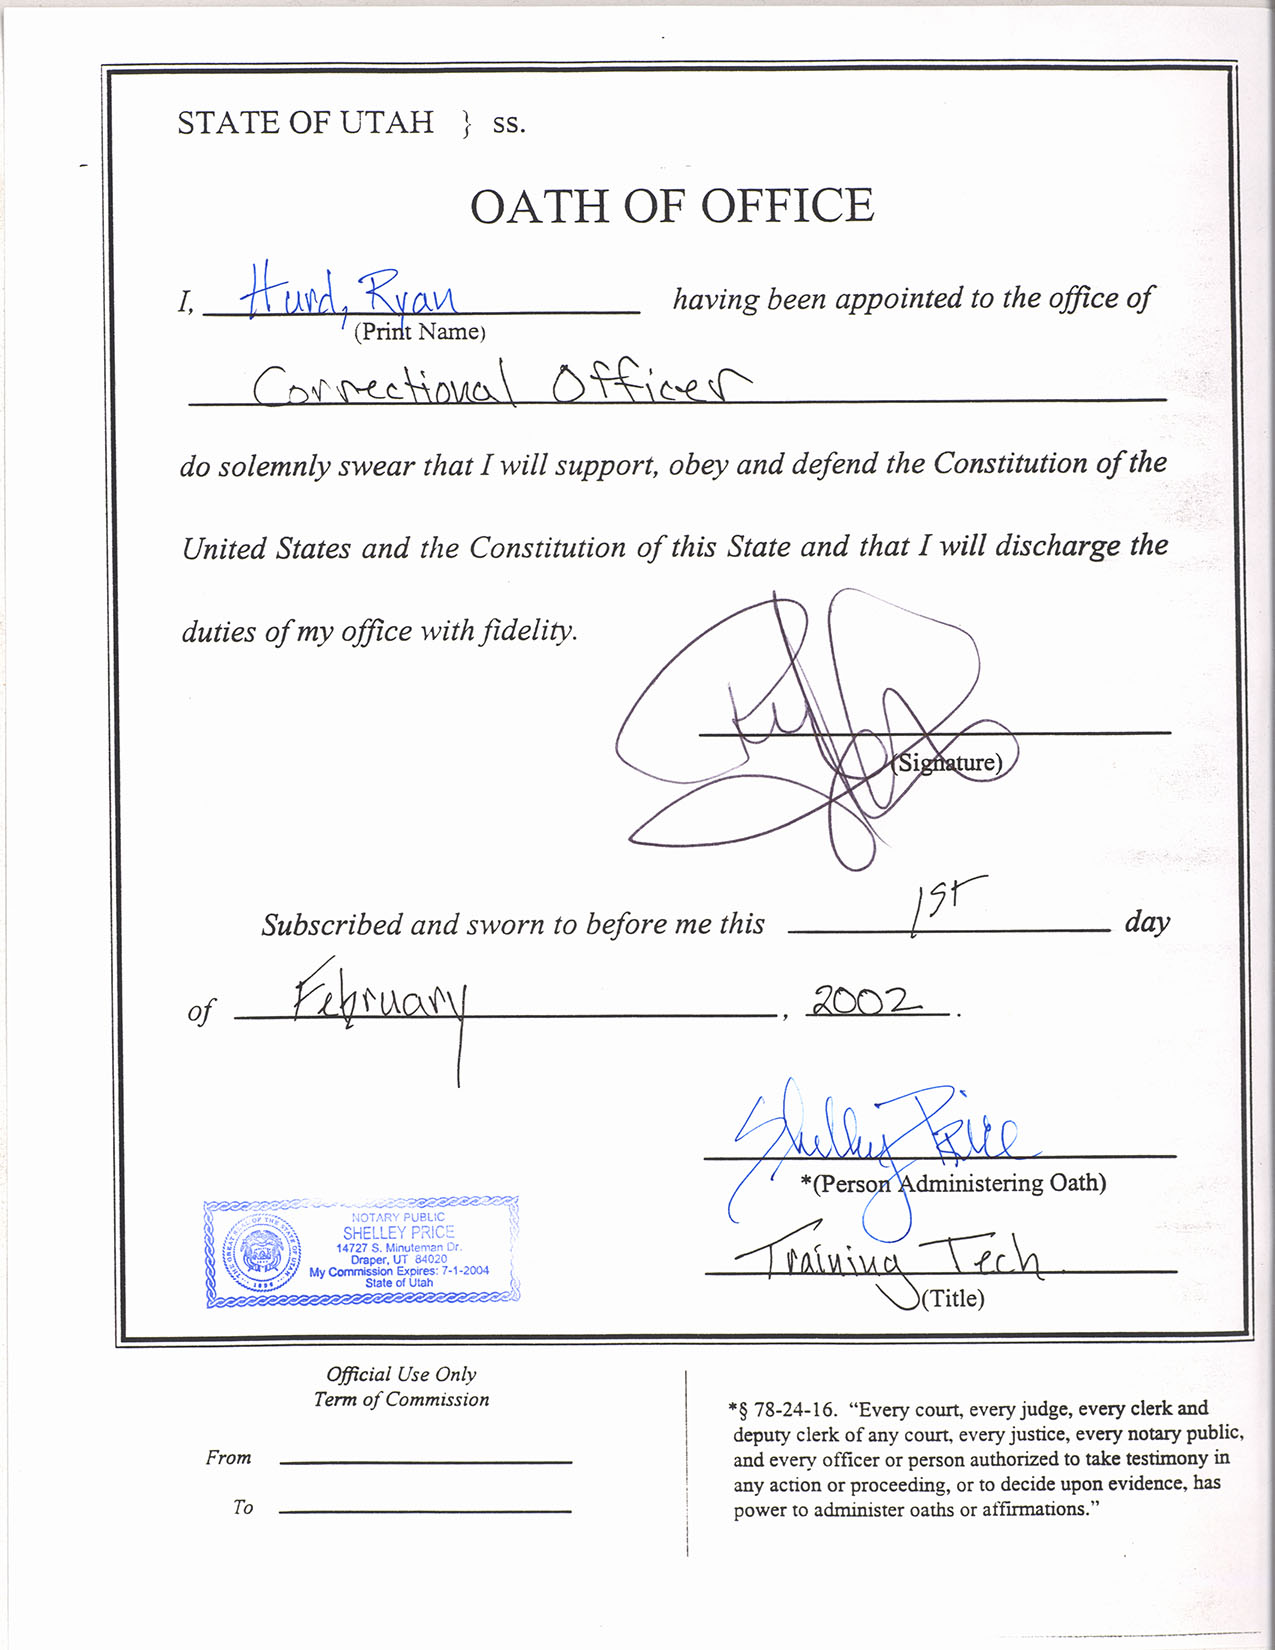 STATE OF UTAH } ss.
OATH OF OFFICE
I, Hurd, Ryan having been appointed to the office of
(Print Name)
Correctional Officer
do solemnly swear that I will support, obey and defend the Constitution of the
United States and the Constitution of this State and that I will discharge the
duties of my office with fidelity.
(Signature)
Subscribed and sworn to before me this 1st day
of February, 2002.
Shelley Price
*(Person Administering Oath)
Training Tech
(Title)
NOTARY PUBLIC
SHELLEY PRICE
14727 S. Minuteman Dr.
Draper, UT 84020
My Commission Expires: 7-1-2004
State of Utah
THE GREAT SEAL OF THE STATE OF UTAH
1896
Official Use Only
Term of Commission
From
To
*§ 78-24-16. “Every court, every judge, every clerk and
deputy clerk of any court, every justice, every notary public,
and every officer or person authorized to take testimony in
any action or proceeding, or to decide upon evidence, has
power to administer oaths or affirmations.”